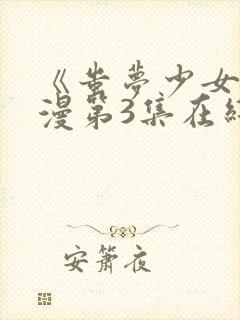 《蚩梦少女
漫第3集在线
安箫夜